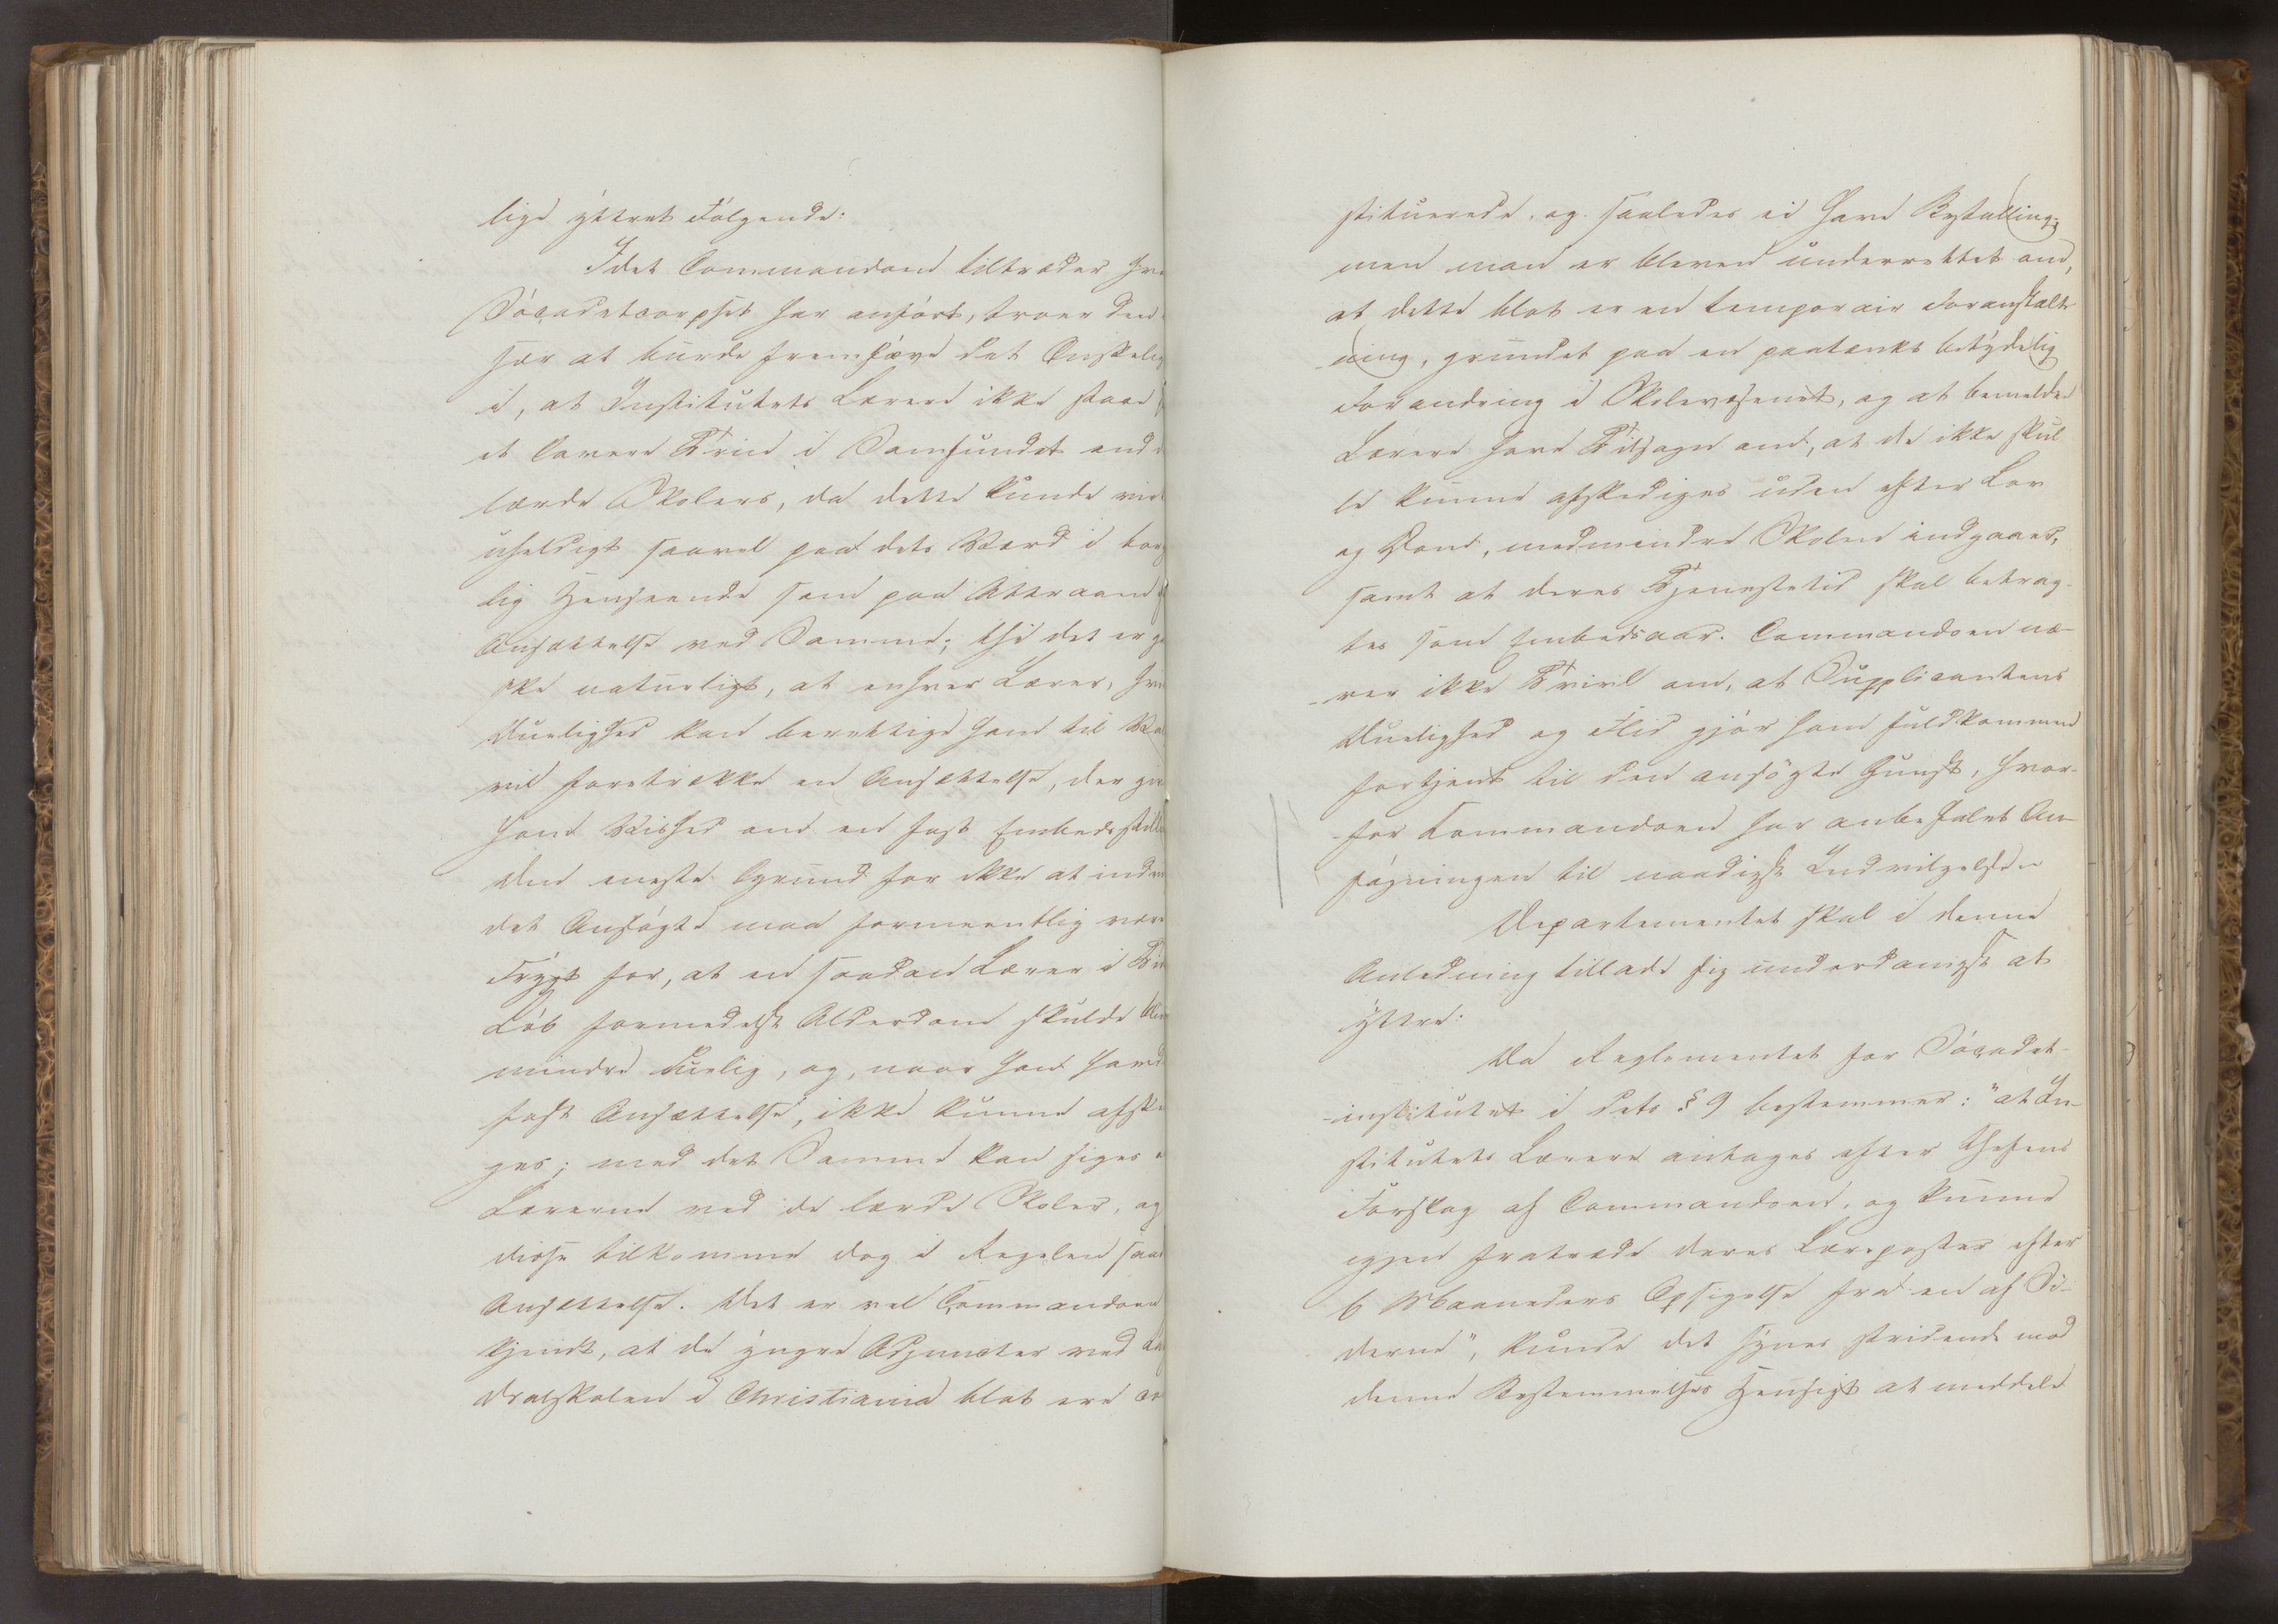 lige ÿttret Følgende:
Idet Commandoen tiltræder hva
Søcadetcorpset har anført, troer den
sær at burde fremhæve det Ønskelig
i, at Institutets Lærere ikke staae
et lavere Trin i Samfundet end
lærde Skolers, da dette kunde vir
uheldigt saavel paa dets Værd i bor
lig Henseende som paa Attraaen
Ansættelse ved Samme; thi det er g
ske naturligt, at enhver Lærer, hvi
Duelighed kan berettige ham til Va
vil foretrække en Ansættelse, der giv
ham Vished om en fast Embedsstilli
Den eneste Grund for ikke at indr
det Ansøgte maa formeentlig være
Frygt for, at en saadan Lærer i Ti
Løb formedelst Alderdom skulde blev
mindre duelig, og, naar han havd
fast Ansættelse, ikke kunne afske
ges; med det Samme kan siges
Lærerne ved de lærde Skoler, og
disse tilkomme dog i Regelen saa
Ansættelse. Det er vel Commandoen
bekjendt, at de ÿngre Adjuncter ved
dralskolen i Christiania blot ere co
stituerede, og saaledes ei have Bestalling;
men man er bleven underrettet om,
at dette blot er en temporair Foranstalt-
ning, grundet paa en paatænkt betÿdelig
Forandring i Skolevæsenet, og at bemeldte
Lærere have Tilsagn om, at de ikke skul
le kunne afskediges uden efter Lov
og Dom, medmindre Skolen indgaaer,
samt at deres Tjenestetid skal betrag-
tes som Embedsaar. Commandoen næ-
rer ikke Tvivl om, at Supplicantens
Duelighed og Flid gjør ham fuldkommen
fortjent til den ansøgte Gunst, hvor-
for Kommandoen har anbefalet An-
søgningen til naadigst Indvilgelse.
Departementet skal i denne
Anledning tillade sig underdanigst at
ÿttre:
Da Reglementet for Søcadet-
institutet i dets § 9 bestemmer: "at In-
stitutets Lærere antages efter Chefens
Forslag af Commandoen, og kunne
igjen fratræde deres Læreposter efter
6 Maaneders Opsigelse fra en af Si-
derne", kunde det sÿnes stridende mod
denne Bestemmelses Hensigt at meddele